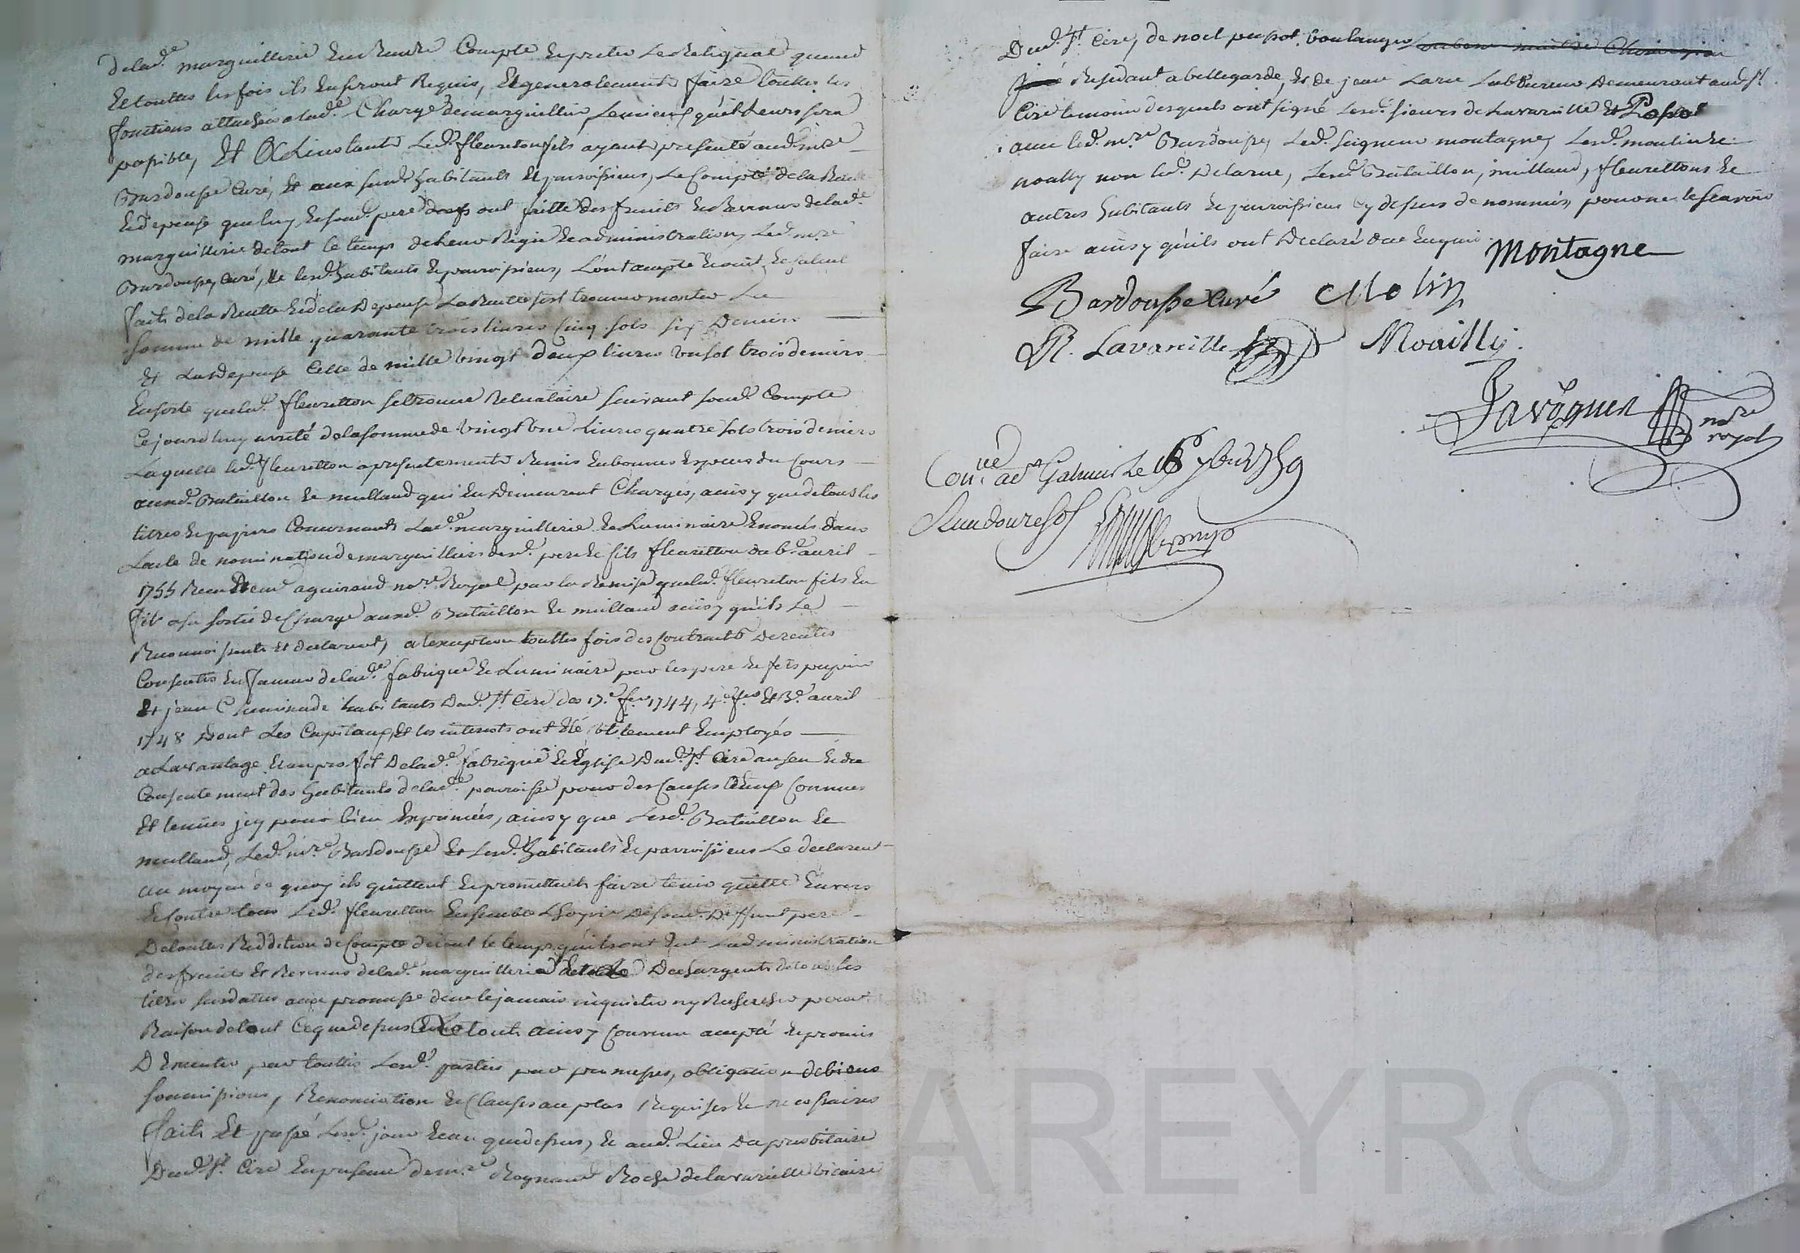 delad.e marguillerie En Rendre Compte Et preter Le Reliquat quand
Et touttes les fois ils En seront Requis, Et generalement faire touttes les
fonctions attachés a lad.e Charge de marguillier, Le mieux qu'il Leurs sera
possible, Et a L'instant Led. fleuretton fils ayant presenté aud. m.re
Bardousse Curé, Et aux susd. habitants Et parroissiens, Le Compte de la Recette
Et depense que luy, Et feu son pere ont faitte des fruits Et Revenus de lad.e
marguillerie de tout le temps de Leur Regie Et administration, Led. m.re
Bardousse, Curé, Et Lesd. habitants Et parroissiens, L'ont accepté Et Calcul
fait de la Recette Et de la Depense La Recette s'est trouvée monter La
somme de mille quarante trois livres Cinq sols six Deniers
Et La depense Celle de mille vingt deux livres un sol trois deniers
En sorte que led. fleuretton se trouve Reliquataire suivant sond. Compte
Ce jourd'huy arreté de la somme de vingt une livres quatre sols trois deniers
Laquelle led. fleuretton a presentement Remis En bonnes Especes du Cours
auxd. Bataillon Et milland qui En Demeurent Chargés, ainsy que de tous les
titres Et papiers Concernants Lad.e marguillerie Et Luminaire Enoncés dans
L'acte de nomination de marguilliers desd. pere Et fils fleuretton du 6.e avril
1755 Receu aguiraud no.re Royal par la Remise que led. fleuretton fils En
fit a sa sortie de Charge auxd. Bataillon Et milland ainsy qu'ils Le
Reconnoissent Et declarent, a l'exception touttes fois des Contracts De rentes
Consentis En faveur de lad.e fabrique Et Luminaire par les pere Et fils
Et jean habitants Dud. S.t Cire des 17.e f.er 1744, 4.e Et 3.e avril
1748 Dont Les Capitaux Et les interests ont Eté utilement Employés
a L'avantage Et au profit De lad.e fabrique Et Eglise Dud. S.t Cire au sçeu Et du
Consentement des habitants de lad.e parroisse pour des Causes a Eux Connues
Et tenues jcy pour bien Exprimées, ainsy que Lesd. Bataillon Et
milland, Led. m.re Bardousse Et Lesd. habitants Et parroissiens Le declarent
au moyen de quoy ils quittent Et promettent faire tenir quitte Envers
Et Contre tous Led. fleuretton Ensemble L'hoirie De feu sond. Deffunt pere
De touttes Reddition de Compte de tout le temps qu'ils ont Eut L'administration
des fruits Et Revenus delad.e marguillerie Des argents de tous les
titres susdattés avec promesse de ne le jamais inquieter ny Rechercher pour
Raison de tout Ce que dessus Le tout ainsy Convenu accepté Et promis
D'Executer par touttes Lesd. parties par promesses, obligation de biens
soumissions, Renonciation Et Clauses au plus Requises Et necessaires
fait Et passé Lesd. jour Et an que dessus, Et aud. Lieu Du presbitaire
Dud. S.t Cire En presence de m.re Roche de Lavareille vicaire
Dud. S.t Cire, de noel pupot boulanger
Residant a bellegarde, Et de jean Larue Laboureur Demeurant aud. S.t
Cire temoins desquels ont signé Lesd. sieurs de Lavareille Et Papot
avec led. m.re Bardousse, Led. seigneur montagne, Lesd. moulin Et
noally non led. Delarue, Lesd. Bataillon, milland, fleurettons Et
autres habitants Et parroissiens cy dessus denommés, pour ne le sçavoir
faire ainsy qu'ils ont Declaré De ce Enquis
Montagne
Bardousse Curé Molin
R. Lavareille Noailly
Lavögner no.re royal
Con.llé a S.t Galmier Le 16 7bre 1759